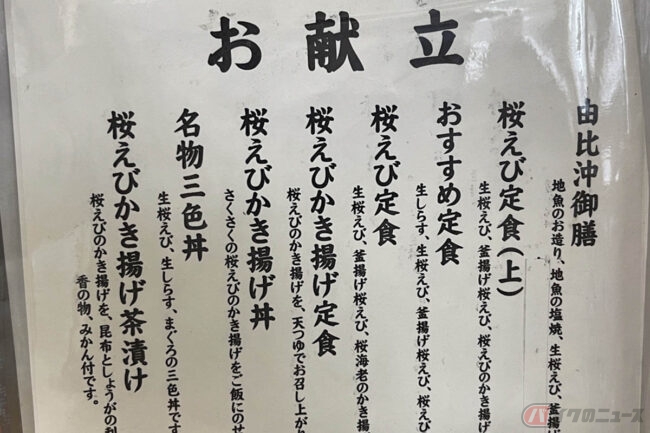 お献立
由比沖御膳
地魚のお造り、地魚の塩焼、生桜えび、釜揚げ
桜えび定食(上)
生桜えび、釜揚げ桜えび、桜えびのかき揚げ
おすすめ定食
生しらす、生桜えび、釜揚げ桜えび、桜えび
桜えび定食
生桜えび、釜揚げ桜えび、桜海老のかき揚
桜えびかき揚げ定食
桜えびのかき揚げを、天つゆでお召し上が
桜えびかき揚げ丼
さくさくの桜えびのかき揚げをご飯にのせ
名物三色丼
生桜えび、生しらす、まぐろの三色丼です
桜えびかき揚げ茶漬け
桜えびのかき揚げを、昆布としょうがの
香の物、みかん付です。
バイクのニュース